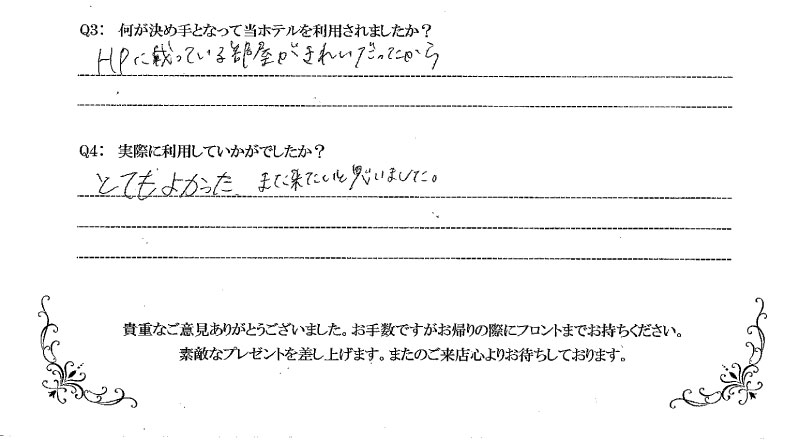 Q3： 何が決め手となって当ホテルを利用されましたか？
HPに載っている部屋がきれいだったから
Q4： 実際に利用していかがでしたか？
とてもよかった、また来たいと思いました。
貴重なご意見ありがとうございました。お手数ですがお帰りの際にフロントまでお持ちください。
素敵なプレゼントを差し上げます。またのご来店心よりお待ちしております。